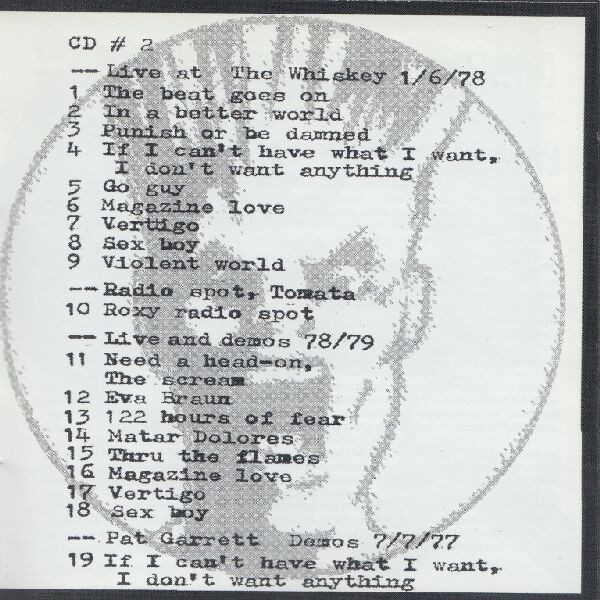 CD # 2
-- Live at The Whiskey 1/6/78
1 The beat goes on
2 In a better world
3 Punish or be damned
4 If I can't have what I want,
I don't want anything
5 Go guy
6 Magazine love
7 Vertigo
8 Sex boy
9 Violent world
-- Radio spot, Tomata
10 Roxy radio spot
-- Live and demos 78/79
11 Need a head-on,
The scream
12 Eva Braun
13 122 hours of fear
14 Matar Dolores
15 Thru the flames
16 Magazine love
17 Vertigo
18 Sex boy
-- Pat Garrett Demos 7/7/77
19 If I can't have what I want,
I don't want anything